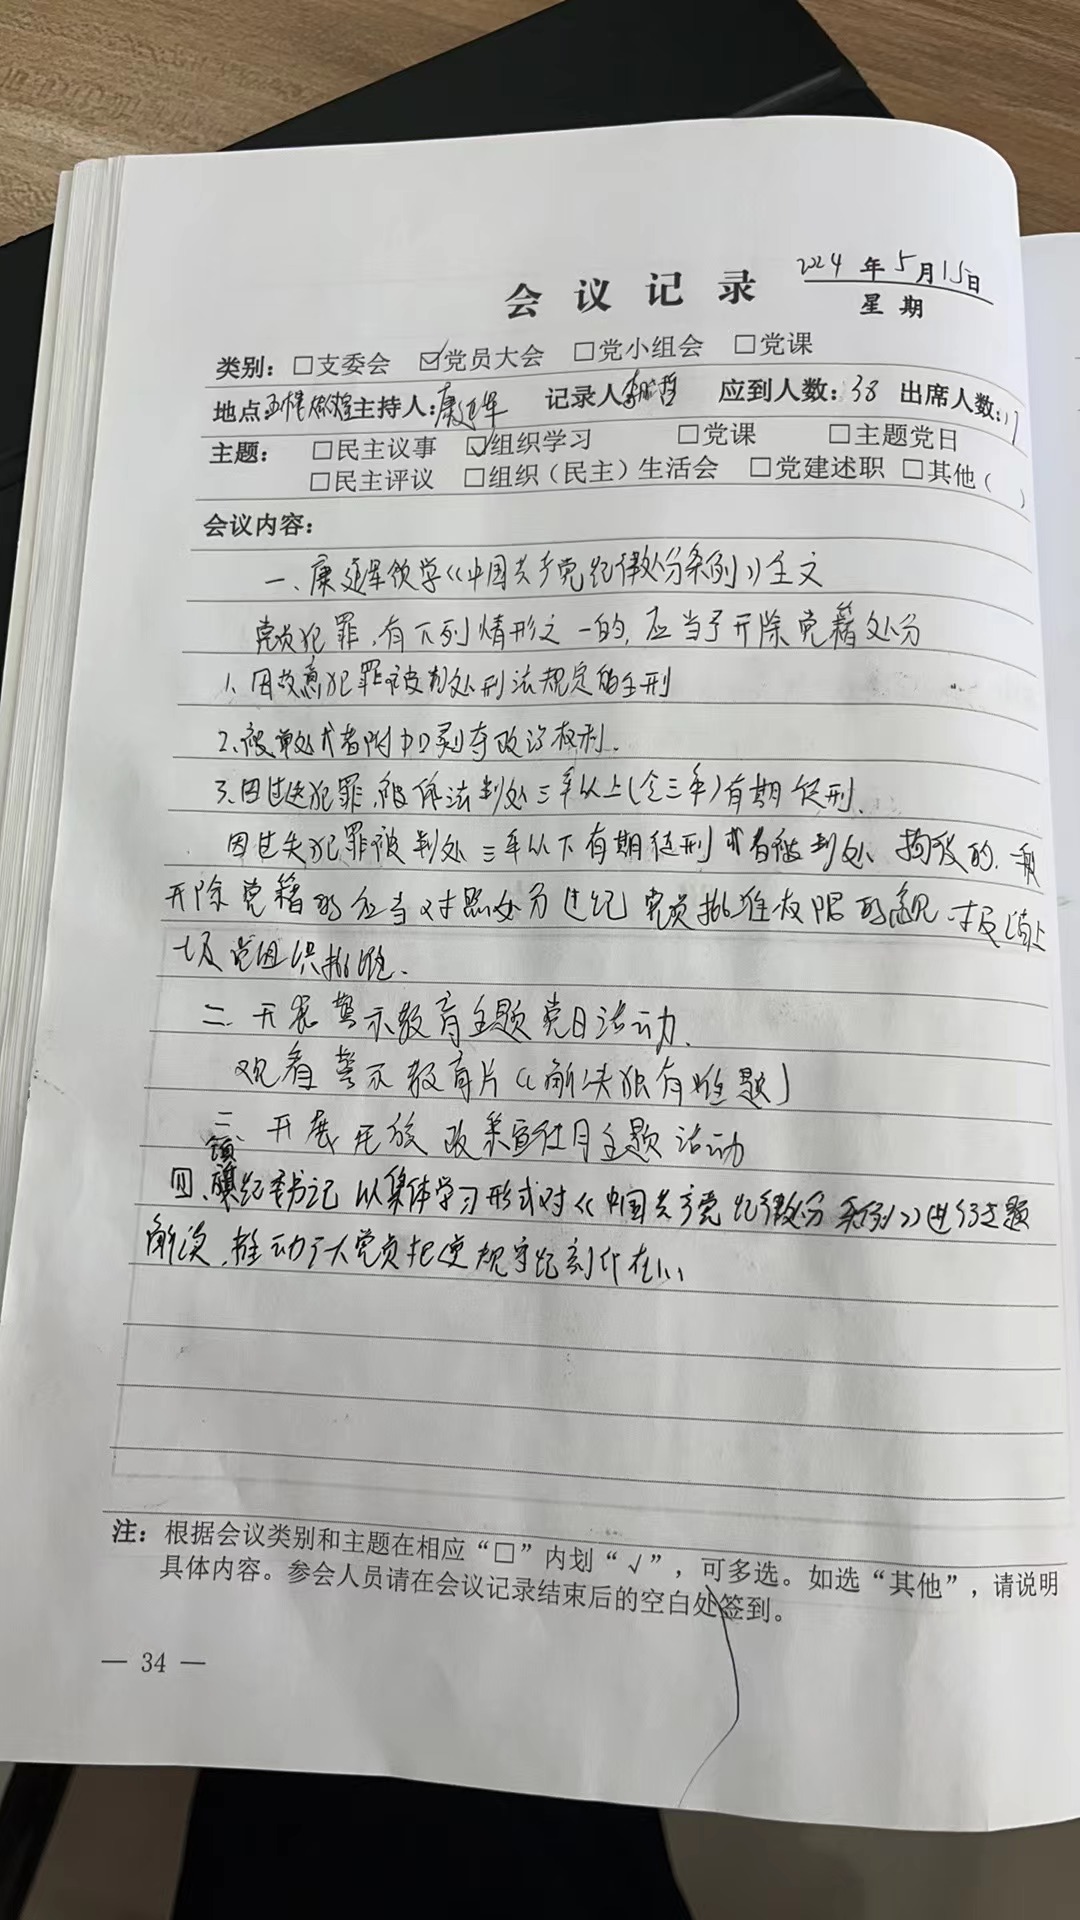 会议记录
2024年5月15日
星期
类别：□支委会 ☑党员大会 □党小组会 □党课
地点 主持人：康延军 记录人 应到人数：38 出席人数：17
主题： □民主议事 ☑组织学习 □党课 □主题党日
□民主评议 □组织（民主）生活会 □党建述职 □其他（ ）
会议内容：
一、康延军领学《中国共产党纪律处分条例》全文
党员犯罪，有下列情形之一的，应当予开除党籍处分
1、因故意犯罪被判处刑法规定的主刑
2、被单处或者附加剥夺政治权利.
3、因过失犯罪，被依法判处三年以上(含三年)有期徒刑.
因过失犯罪被判处三年以下有期徒刑或者被判处 的.
开除党籍的应当对照处分违纪党员批准权限的 报请上
级党组织批准.
二. 开展警示教育主题党日活动.
观看警示教育片《解决独有难题》
三 开展 政策宣社月主题活动
镇
四、纪委书记以集体学习形式对《中国共产党纪律处分条例》进行专题
解读，推动广大党员把党规守纪刻印在心
注：根据会议类别和主题在相应“□”内划“√”，可多选。如选“其他”，请说明
具体内容。参会人员请在会议记录结束后的空白处签到。
— 34 —